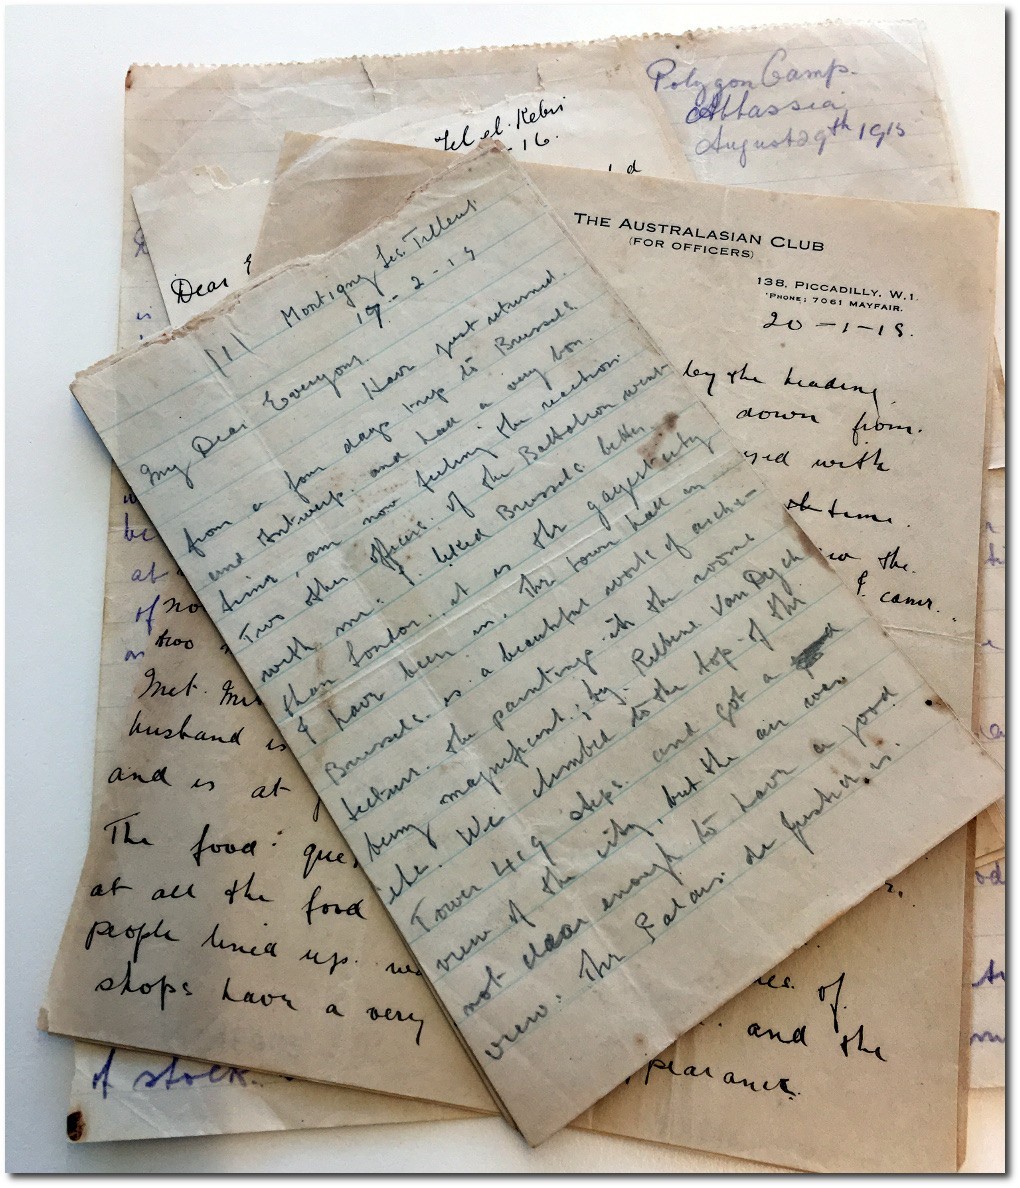 Polygon Camp.
Abbassia,
August 29th 1915
Tel el. Kebir
-16.
Dear E
THE AUSTRALASIAN CLUB
(FOR OFFICERS)
138, PICCADILLY, W.1.
'PHONE: 7061 MAYFAIR.
20-1-18.
by the heading
down from.
with
the time.
the.
I came.
(1)
Montigny les.
19-2-19
My Dear Everyone.
Have just returned
from a four days trip to Brussels
and Antwerp; and had a very bon.
time, am now feeling the reaction
Two other officers of the Battalion went
with me. I liked Brussels better
than London. it is the gayest city
I have been in. The town hall in
Brussels is a beautiful work of archi-
tecture. the paintings in the rooms
being magnificent; by Van Dych
etc. We climbed to the top of the
Tower 419 steps and got a
view of the city, but the air was
not clear enough to have a good
view. The Palais de Justice is.
at
of no
two
Met. Mrs
husband is
and is at
The food ques
at all the food
people lined up.
shops have a very
of
and the
appearance.
of stock.